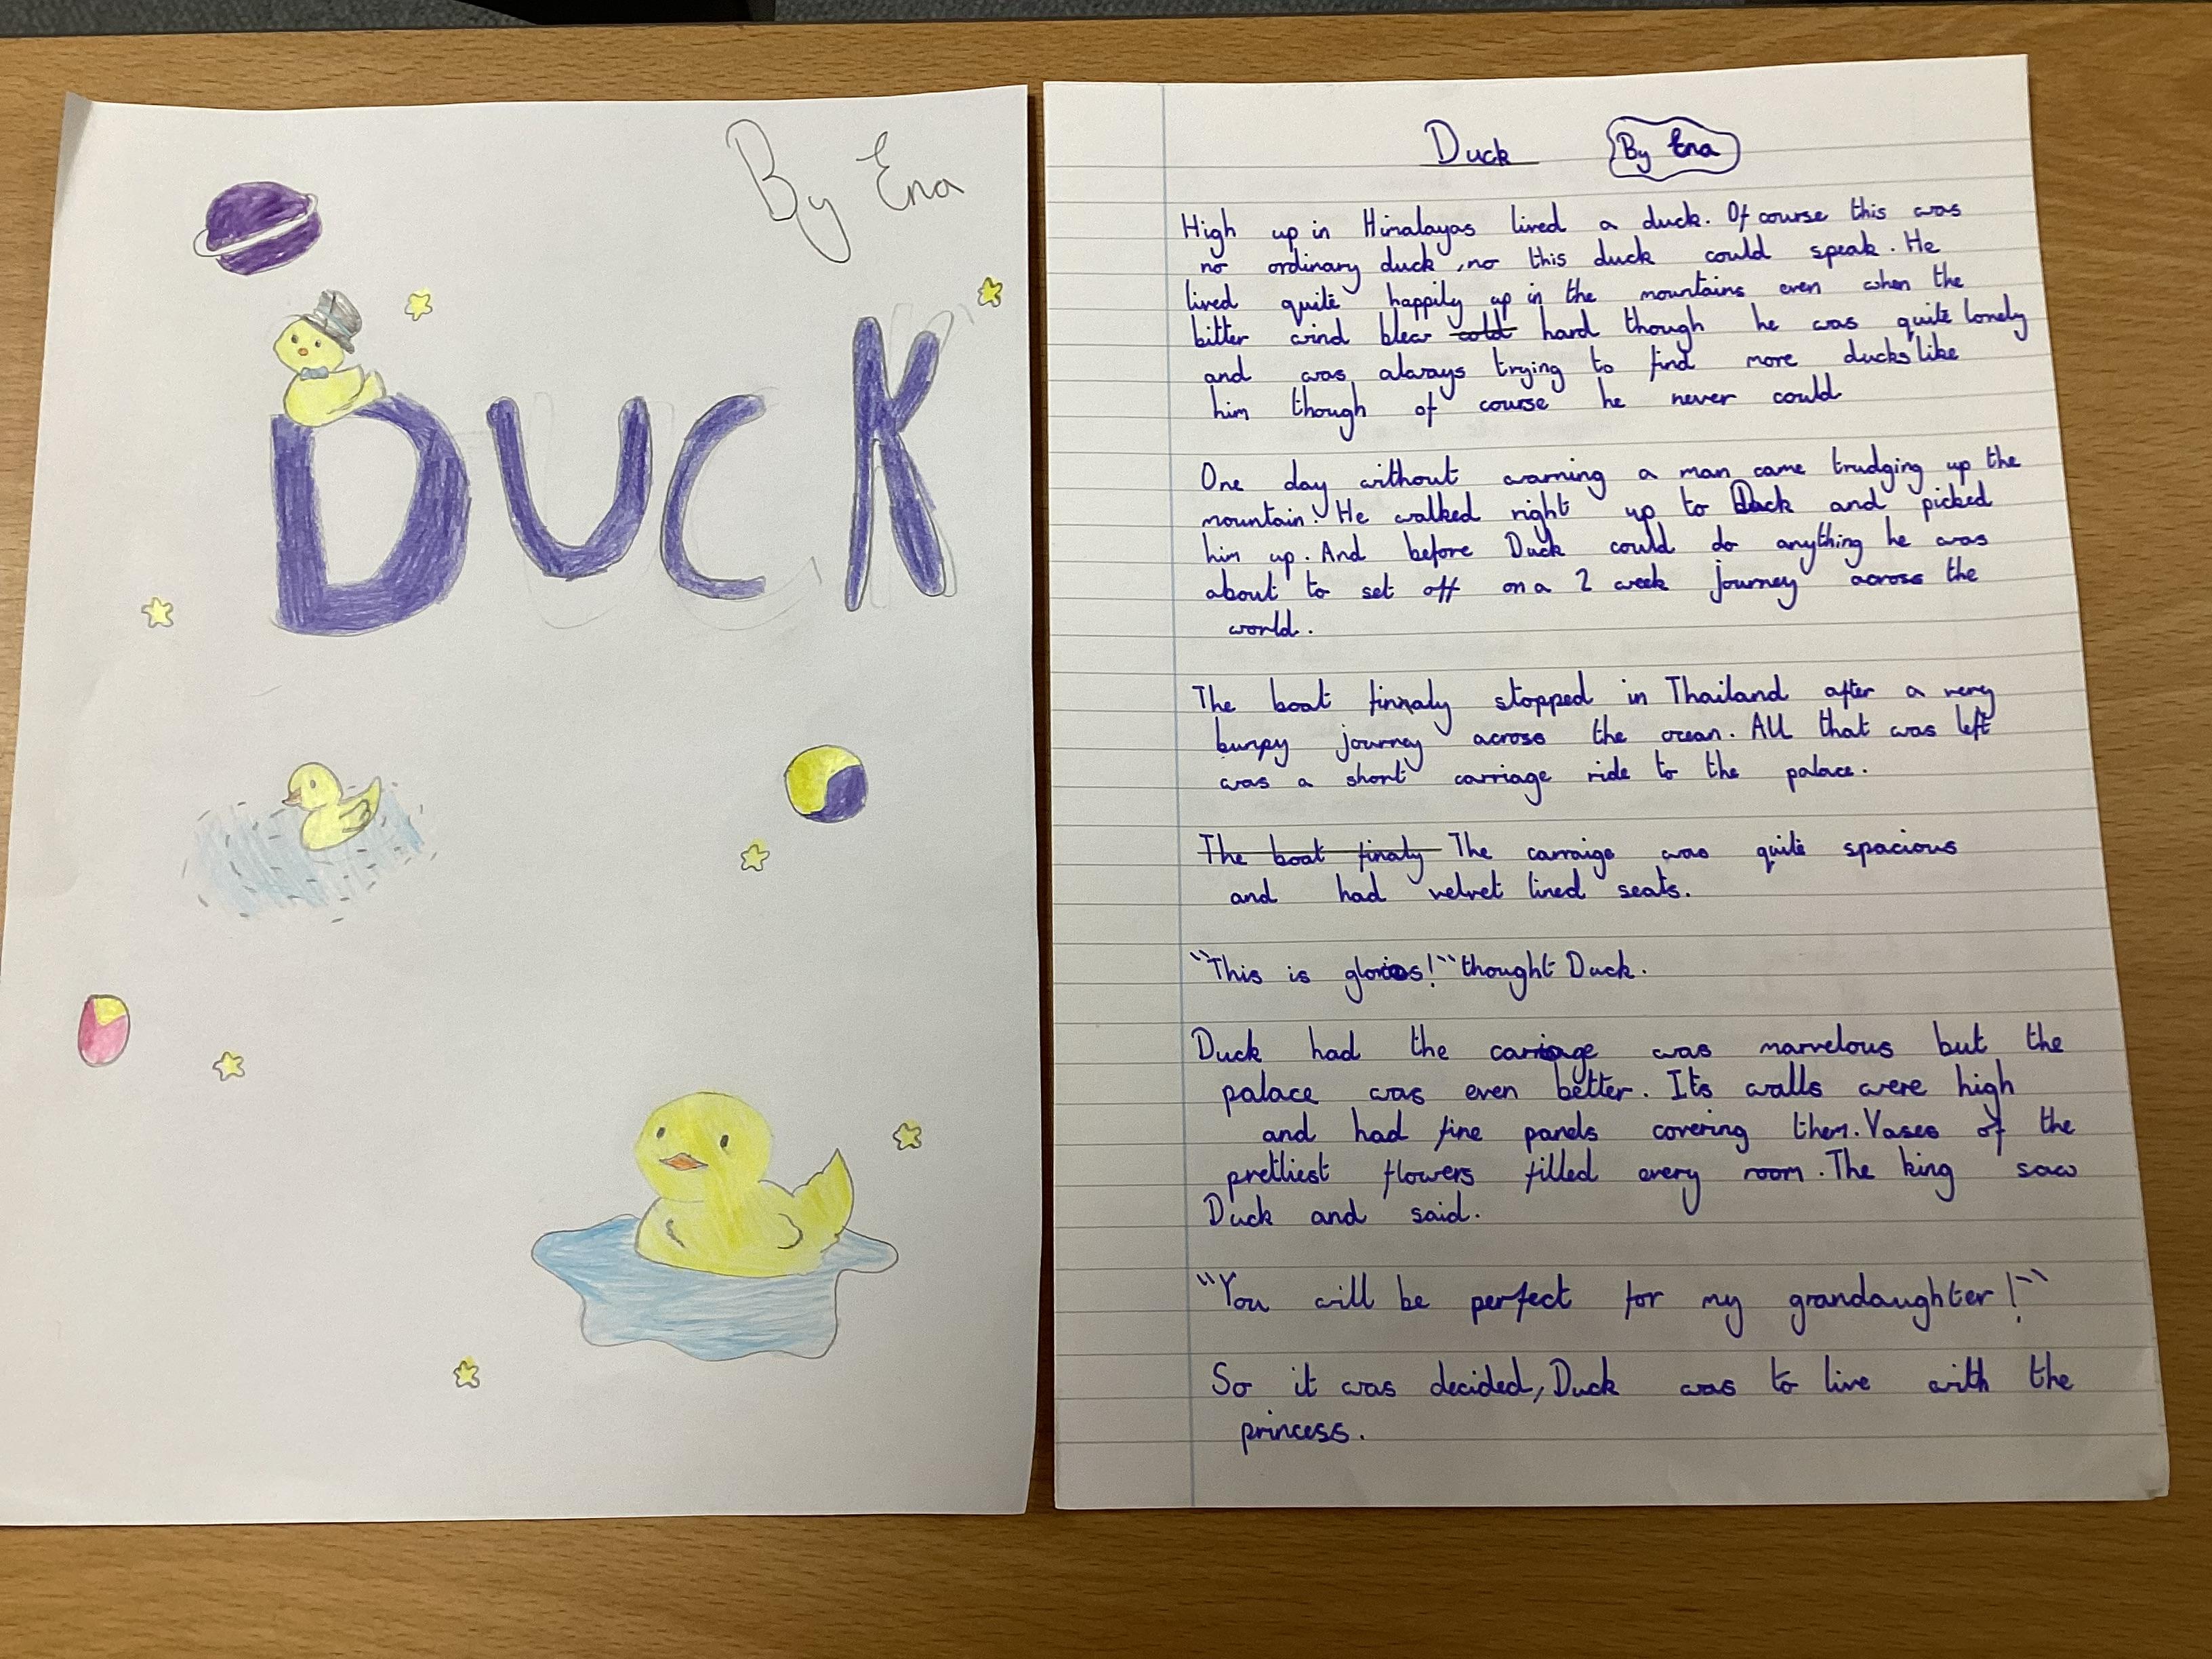 By Ena
DUCK
Duck By Ena
High up in Himalayas lived a duck. Of course this was
no ordinary duck, no this duck could speak. He
lived quite happily up in the mountains even when the
bitter wind blew cold hard though he was quite lonely
and was always trying to find more ducks like
him though of course he never could
One day without warning a man came trudging up the
mountain. He walked right up to Duck and picked
him up. And before Duck could do anything he was
about to set off on a 2 week journey across the
world.
The boat finnaly stopped in Thailand after a very
bumpy journey across the ocean. All that was left
was a short carriage ride to the palace.
The boat finaly The carraige was quite spacious
and had velvet lined seats.
"This is glorios!" thought Duck.
Duck had the carriage was marvelous but the
palace was even better. Its walls were high
and had fine panels covering them. Vases of the
prettiest flowers filled every room. The king saw
Duck and said.
"You will be perfect for my grandaughter!"
So it was decided, Duck was to live with the
princess.